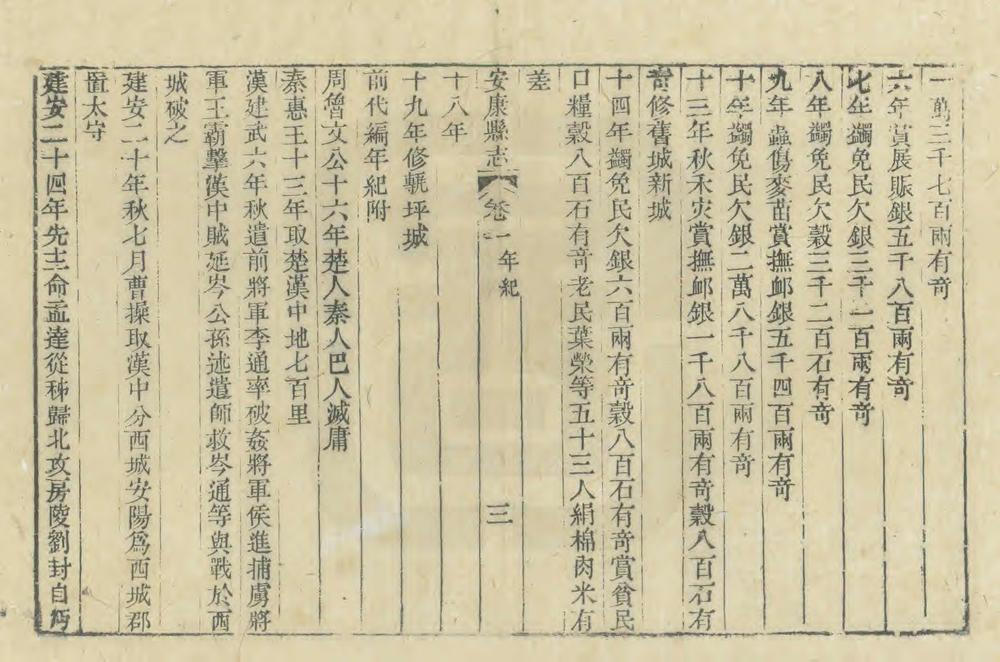 一萬三千七百兩有奇
六年賞展賑銀五千八百兩有奇
七年蠲免民欠銀三千一百兩有奇
八年蠲免民欠穀三千二百石有奇
九年蟲傷麥苗賞撫䘏銀五千四百兩有奇
十年蠲免民欠銀二萬八千八百兩有奇
十三年秋禾灾賞撫䘏銀一千八百兩有奇穀八百石有
奇修舊城新城
十四年蠲免民欠銀六百兩有奇穀八百石有奇賞貧民
口糧穀八百石有奇老民葉榮等五十三人絹棉肉米有
差
安康縣志 卷一 年紀 三
十八年
十九年修甎坪城
前代編年紀附
周魯文公十六年楚人秦人巴人滅庸
秦惠王十三年取楚漢中地七百里
漢建武六年秋遣前將軍李通率破姦將軍侯進捕虜將
軍王霸擊漢中賊延岑公孫述遣師救岑通等與戰於西
城破之
建安二十年秋七月曹操取漢中分西城安陽爲西城郡
置太守
建安二十四年先主命孟達從秭歸北攻房陵劉封自沔